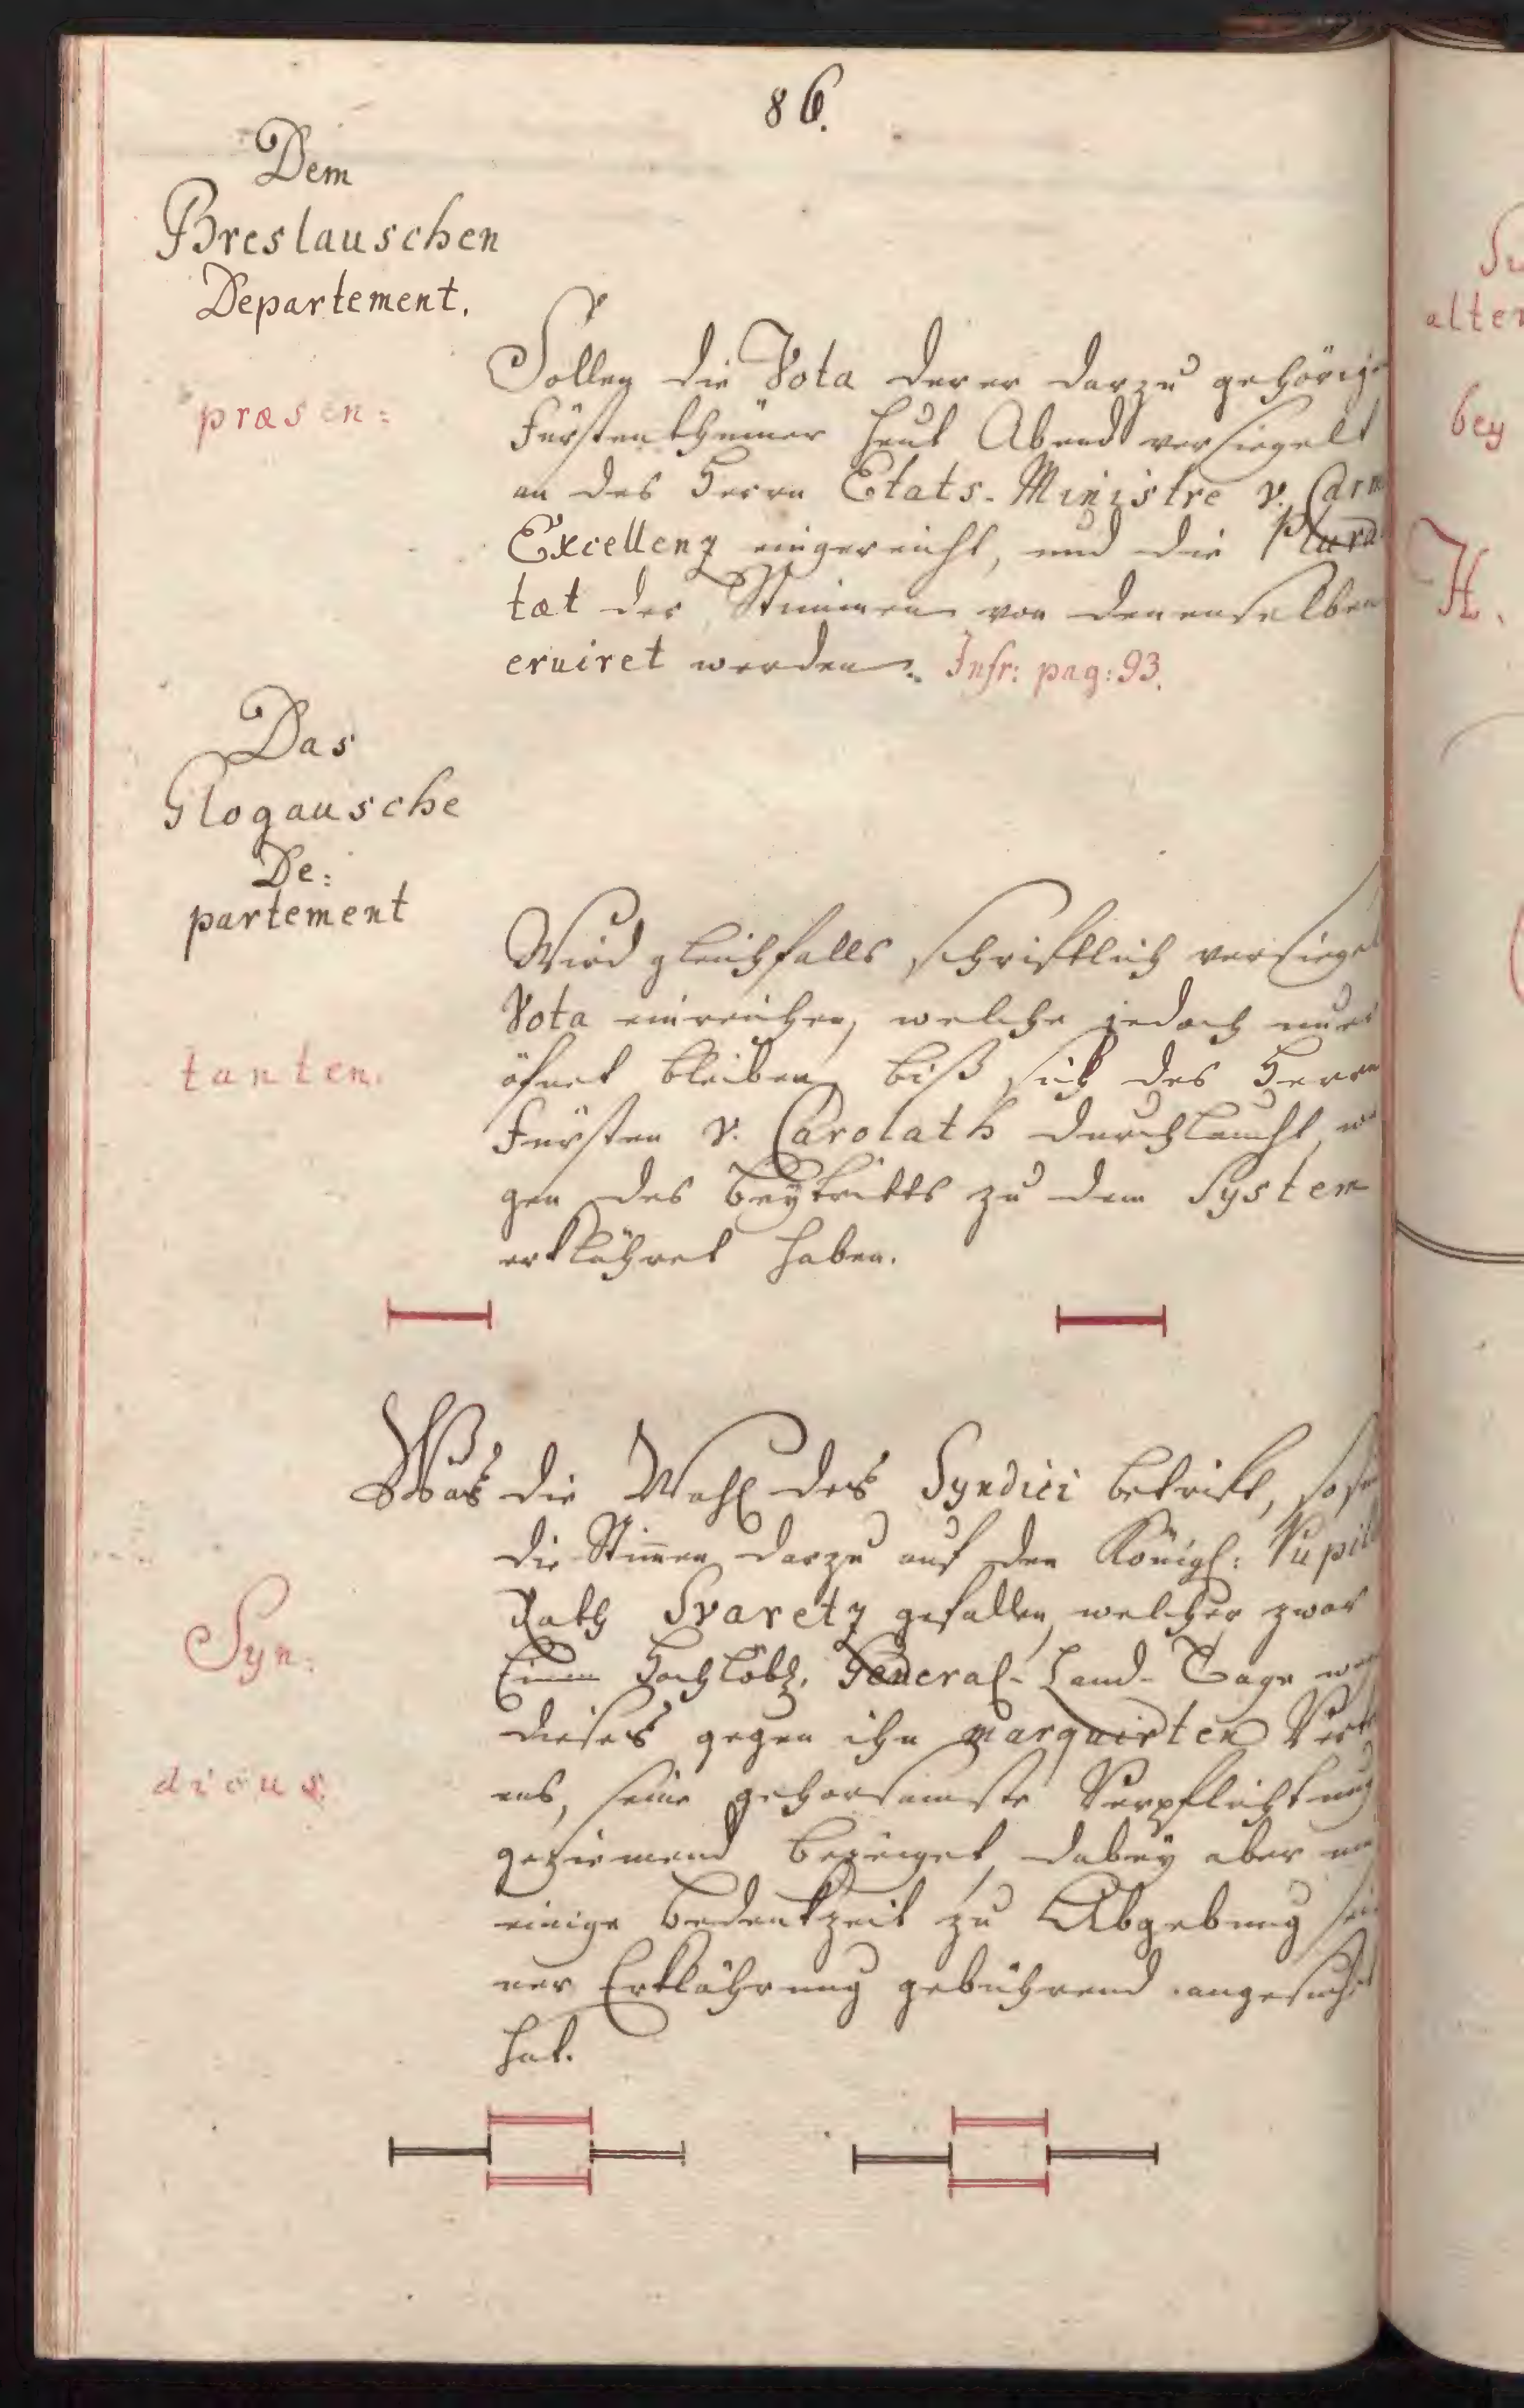 86.
Dem
Breslauschen
Departement.
præsen:
Sollen die Vota derer darzu gehörige
Fürstenthümer heut Abend versiegelt
an des Herrn Etats-Ministre v. Carm
Excellenz eingereicht, und die Plura
tæt der Stimmen von denenselben
eruiret werden. Infr: pag: 93.
Das
Glogausche
De:
partement
tanten.
Wird gleichfalls schriftlich versiegel
Vota einreichen, welche jedoch uner
öfnet bleiben, biß sich des Herrn
Fürsten v. Carolath Durchlaucht, we
gen des Beytritts zu dem System
erklähret haben.
Was die Wahl des Syndici betrift, so
die Stimmen darzu auf den Königl: Pupill
Rath Svaretz gefallen, welcher zwar
Einem Hochlöbl. General-Land-Tage weg
dieses gegen ihn marquirten Vertr
ens, seine gehorsamste Verpflichtung
geziemend bezeiget, dabey aber um
einige Bedenkzeit zu Abgebung sei
ner Erklährung gebührend angesucht
hat.
Syn:
dicus.
alter
bey
H.